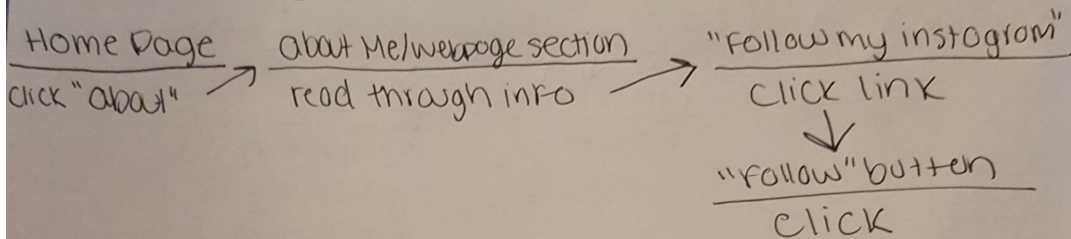 Home Page
click "about"
about Me/webpage section
read through info
"Follow my instagram"
click link
"Follow" button
click